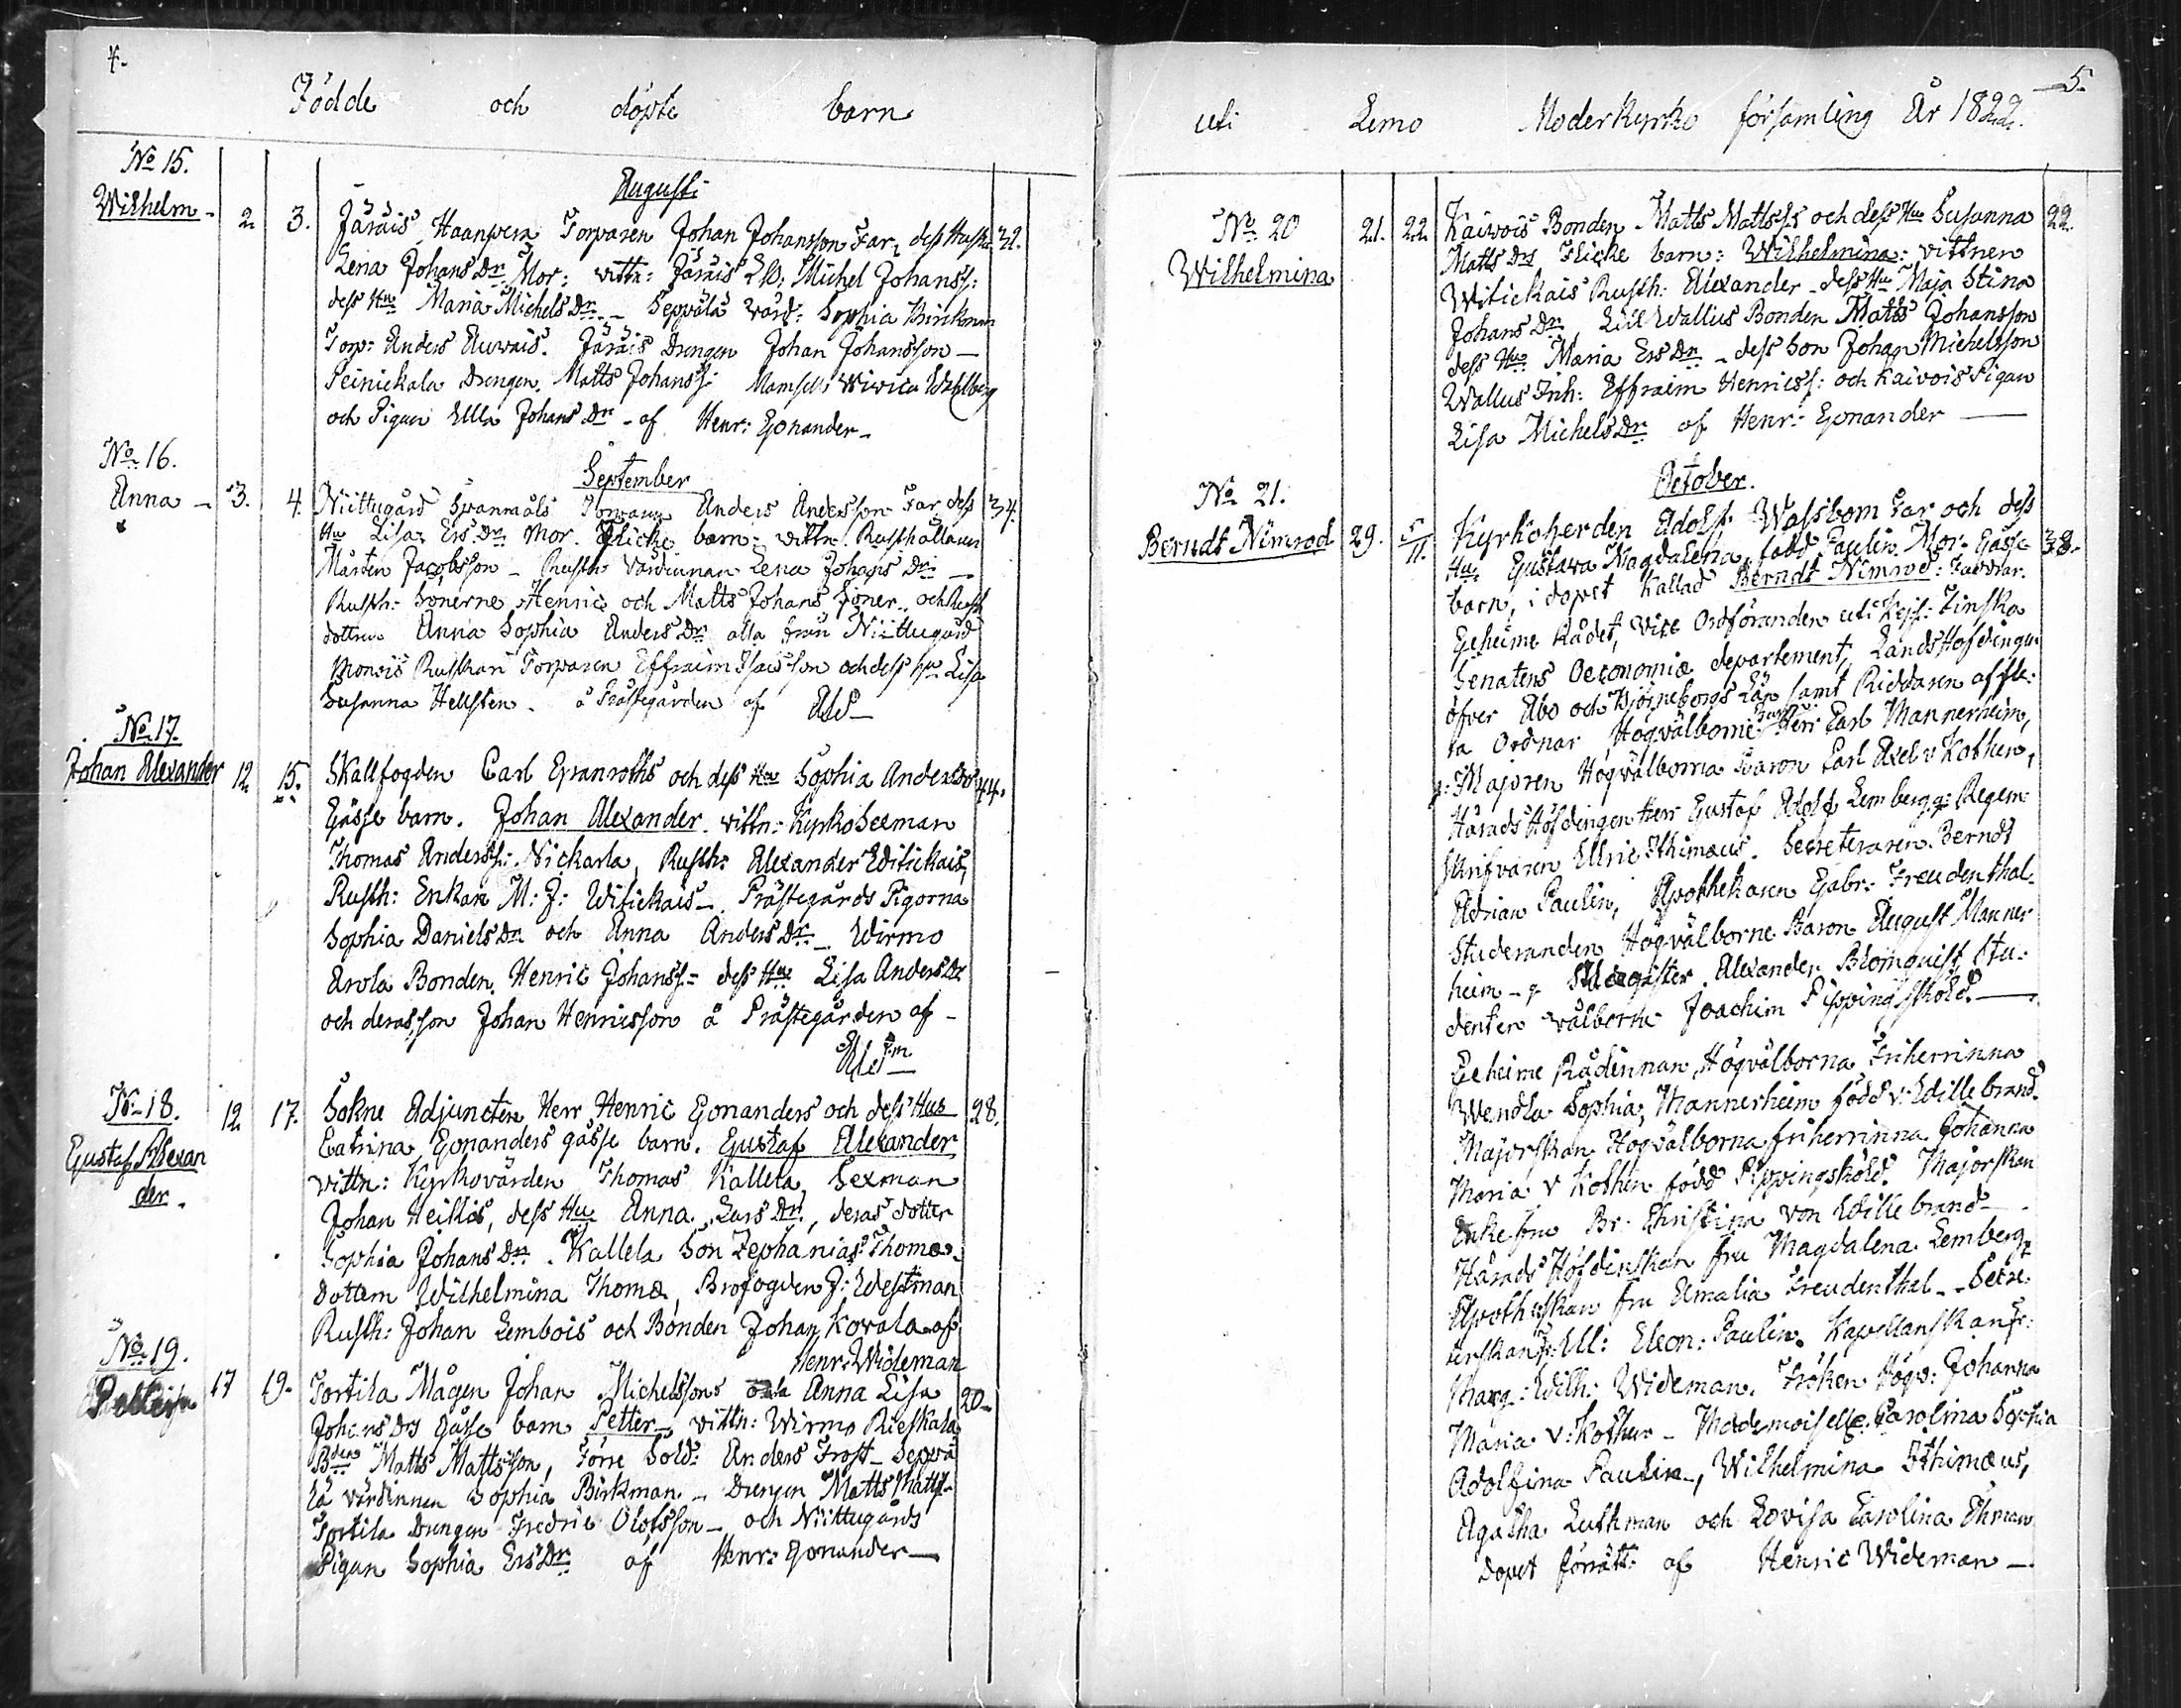 4.
Födde och döpte barn
No 15.
Wilhelm -
2. 3.
Augusti
Järäis Haanperä Torparen Johan Johansson Far, dess Hustru 42.
Lena Johans Dr Mor: vittn: Järäis Michel Johanss:
dess Hu Maria Michels Dr - Seppälä värd: Sophia Birkman
Torp: Anders Auvais. Järäis Drengen Johan Johansson -
Peinickala Drengen Matts Johanss: Mamsell Wivica Wahlberg
och Pigan Ulla Johans Dr - af Henr: Gonander -
No 16.
Anna -
3. 4.
September
Niittugård Torparen Anders Andersson Far, dess 34.
Hu Lisa Ers Dr Mor. Flicke barn - vittn: Rusthållaren
Mårten Jacobsson - Rusth: Värdinnan Lena Johans Dr -
Rusth: Sönerne Henric och Matts Johans Söner, och Rusth
dottren Anna Sophia Anders Dr alla från Niittugård
Monois Torparen Effraim Isacsson och dess Hu Lisa
Susanna Hellsten. å Prästegården af
No 17.
Johan Alexander
12. 15.
Skallfogden Carl Granroths och dess Hu Sophia Anders Dr 44.
Gåsse barn. Johan Alexander. vittn: Kyrko Sexman
Thomas Anderss: Nickarla, Rusth: Alexander Witickais,
Rusth: Enkan M: J: Witickais - Prästegårds Pigorna
Sophia Daniels Dr och Anna Anders Dr - Wirmo
Arola Bonden Henric Johanss: dess Hu Lisa Anders Dr
och deras son Johan Henricsson å Prästegården af -
No 18.
Gustaf Alexan
der.
12. 17.
Sokne Adjuncten Herr Henric Gonanders och dess Hus 28.
Catrina Gonanders gåsse barn. Gustaf Alexander
vittn: Kyrkovärden Thomas Kallela Sexman
Johan Heikis, dess Hu Anna Lars Dr, deras dotter
Sophia Johans Dr. Kallela Son Zephanias Thomæ
Dottern Wilhelmina Thomæ, Brofogden J: Westman
Rusth: Johan Lembois och Bonden Johan Korala af
Henr: Wideman
No 19.
17 19.
Tortila Mågen Johan Michelssons Anna Lisa 20.
Johans Drs Gåsse barn Petter - vittn: Wirmo Rieskala
Bden Matts Mattsson, Förre Sold: Anders Frost - Seppä
lä värdinnan Sophia Birkman - Drengen Matts Matts:
Tortila Drengen Fredric Olofsson - och Niittugårds
Pigan Sophia Ers Dr af Henr: Gonander -
5.
uti Lemo Moderkyrko församling År 1822.
No 20
Wilhelmina
21. 22.
Kaivois Bonden Matts Mattss:s och dess Hus Susanna 22.
Matts Drs Flicke barn: Wilhelmina: vittnen
Witickais Rusth: Alexander - dess Hu Maja Stina
Johans Dr, Lill Wallius Bonden Matts Johansson
dess Hu Maria Ers Dr - dess Son Johan Michelsson
Wallus Inh: Effraim Henricss: och Kaivois Pigan
Lisa Michels Dr af Henr: Gonander -
No 21.
Berndt Nimrod
29. 5/11.
October.
Kyrkoherden Adolf Wassbom Far och dess
Hu: Gustava Magdalena, född Paulin Mor. Gåsse- 38.
barn, i dopet kallad Berndt Nimrod: Faddrar.
Geheime Rådet, Vice Ordföranden uti Kejs: Finska
Senatens Oeconomiæ departement, Landshöfdingen
öfver Åbo och Björneborgs Län samt Riddaren af fle-
ra Ordnar Högvälborne Herr Carl Mannerheim,
g: Majoren Högvälborna Baron Carl Axel v Kothen,
Härads Höfdingen Herr Gustaf Adolf Lemberg g: Regem:
Skrifvaren Ulric Ithimæus. Secreteraren Berndt
Adrian Paulin, Apothekaren Gabr: Freudenthal.
Studeranden Högvälborne Baron August Manner
heim - g Magister Alexander Blomquist Stu-
denten välborne Joachim Pippingsköld. -
Geheime Rådinnan, Högvälborna Friherrinna
Wendla Sophia, Mannerheim född v: Willebrand.
Majorskan Högvälborna friherrinna Johanna
Maria v Kothen född Pippingsköld. Majorskan
Enkefru Br: Christina von Willebrand -
Härads Höfdinskan fru Magdalena Lemberg
Apothekskan fru Amalia Freudenthal - Secre:
terskan Fr: Ul: Eleon: Paulin. Kapellanskan fr:
Marg: Wilh: Wideman. Fröken Högv: Johanna
Maria v: Kothen - Mademoiselle Carolina Sophia
Adolfina Paulin -, Wilhelmina Ithimæus,
Agatha Luthman och Lovisa Carolina Ithman
Dopet förrätt: af Henric Wideman -